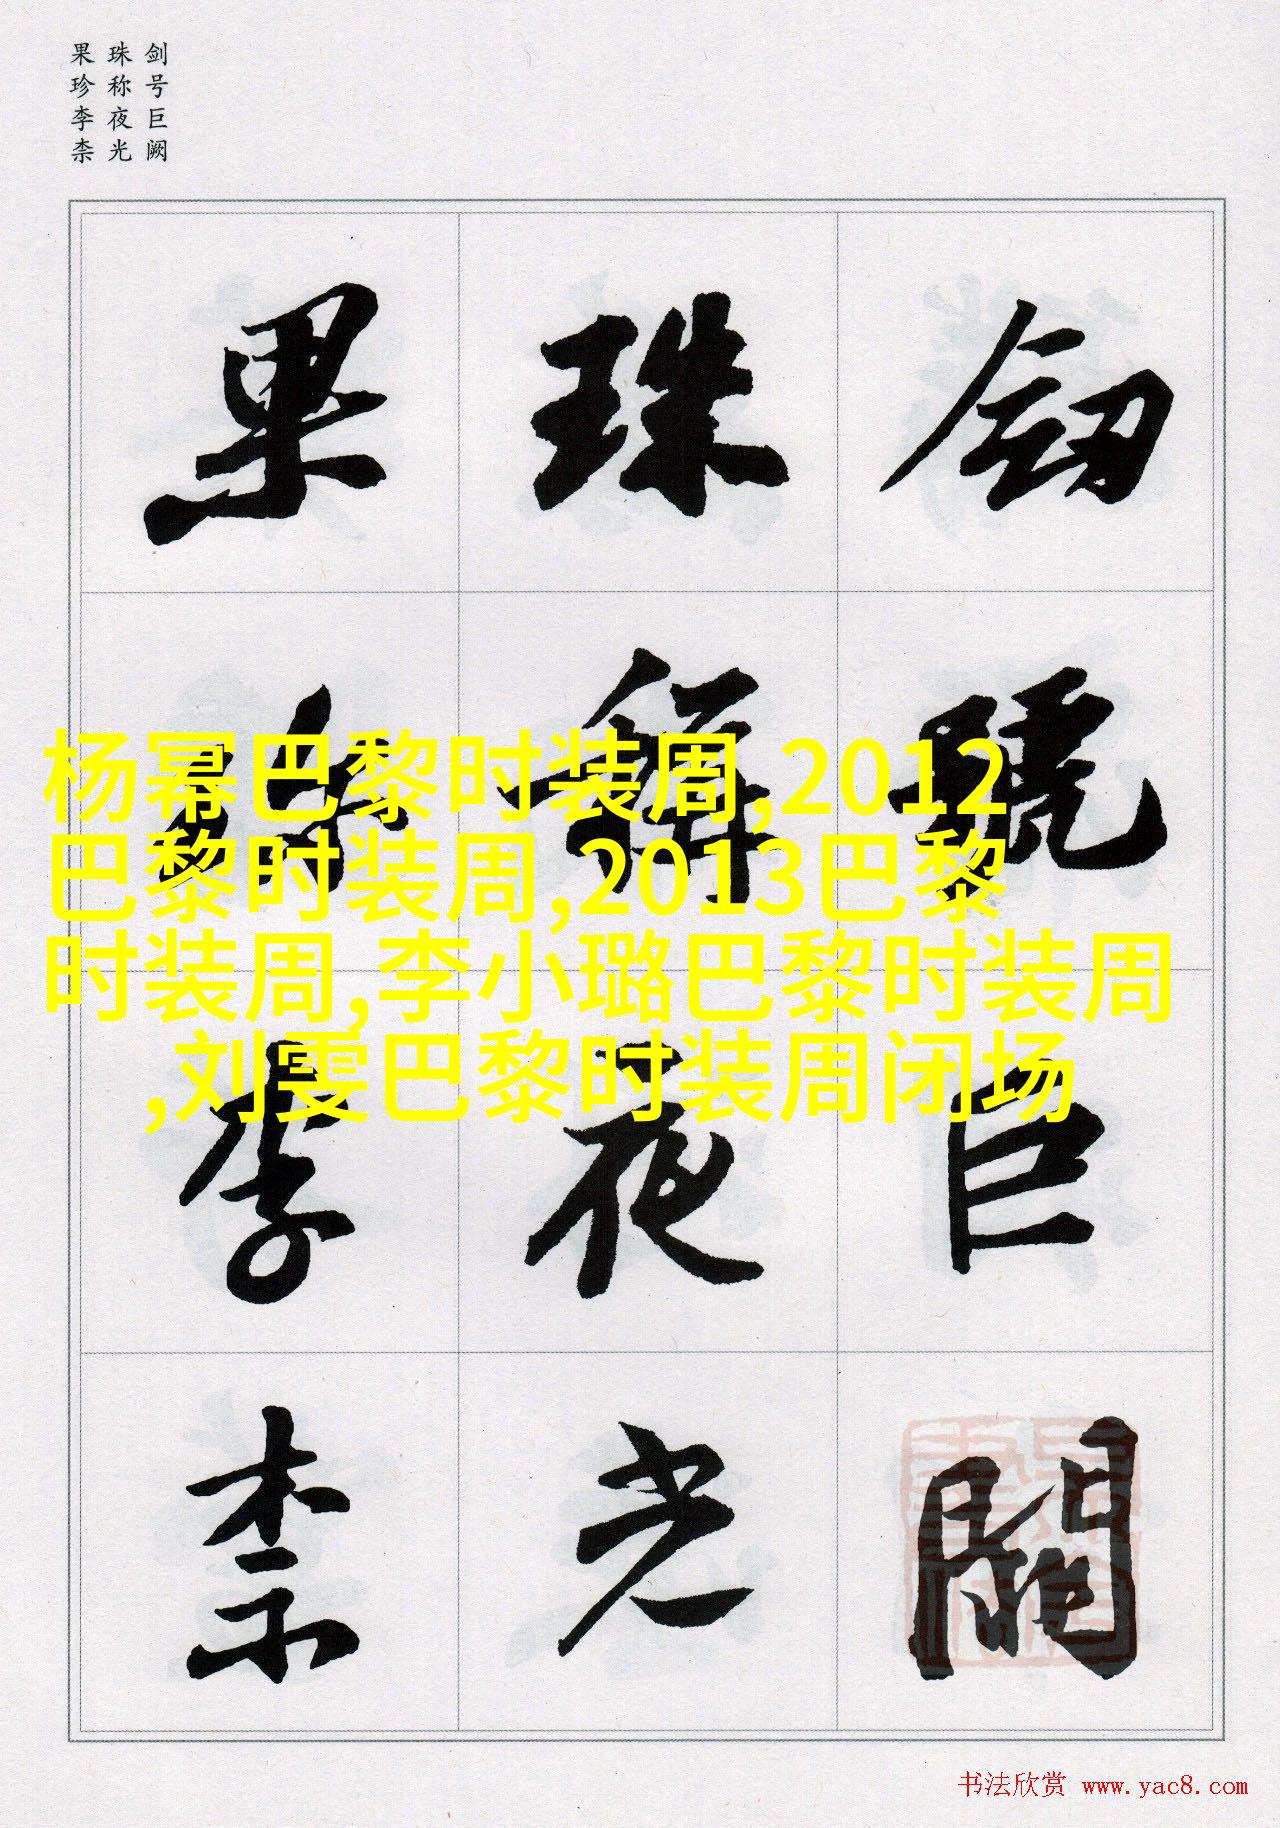 剑号巨阙
珠称夜光
果珍李柰
劒號巨闕
珠稱夜光
果珍李柰
杨幂巴黎时装周,2012
巴黎时装周,2013巴黎
时装周,李小璐巴黎时装周
,刘雯巴黎时装周闭场
书法欣赏 www.yac8.com